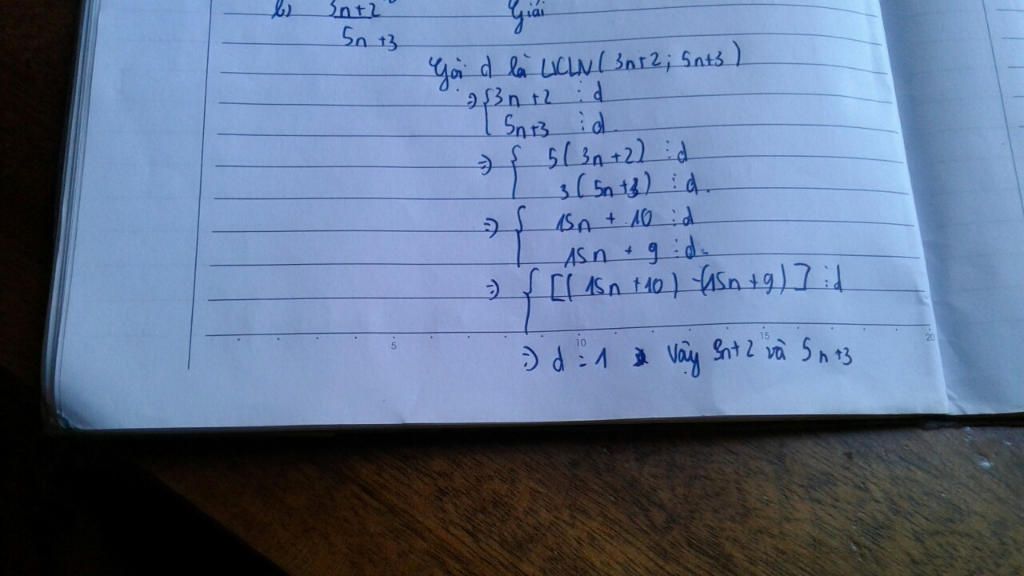 b) 3n+2
5n+3
Giải
Gọi d là ƯCLN(3n+2; 5n+3)
=> { 3n+2 ⋮ d
5n+3 ⋮ d.
=> { 5(3n+2) ⋮ d
3(5n+3) ⋮ d.
=> { 15n + 10 ⋮ d
15n + 9 ⋮ d.
=> { [(15n+10) -(15n+9)] ⋮ d
5 10 15 20
=> d = 1 Vậy 3n+2 và 5n+3